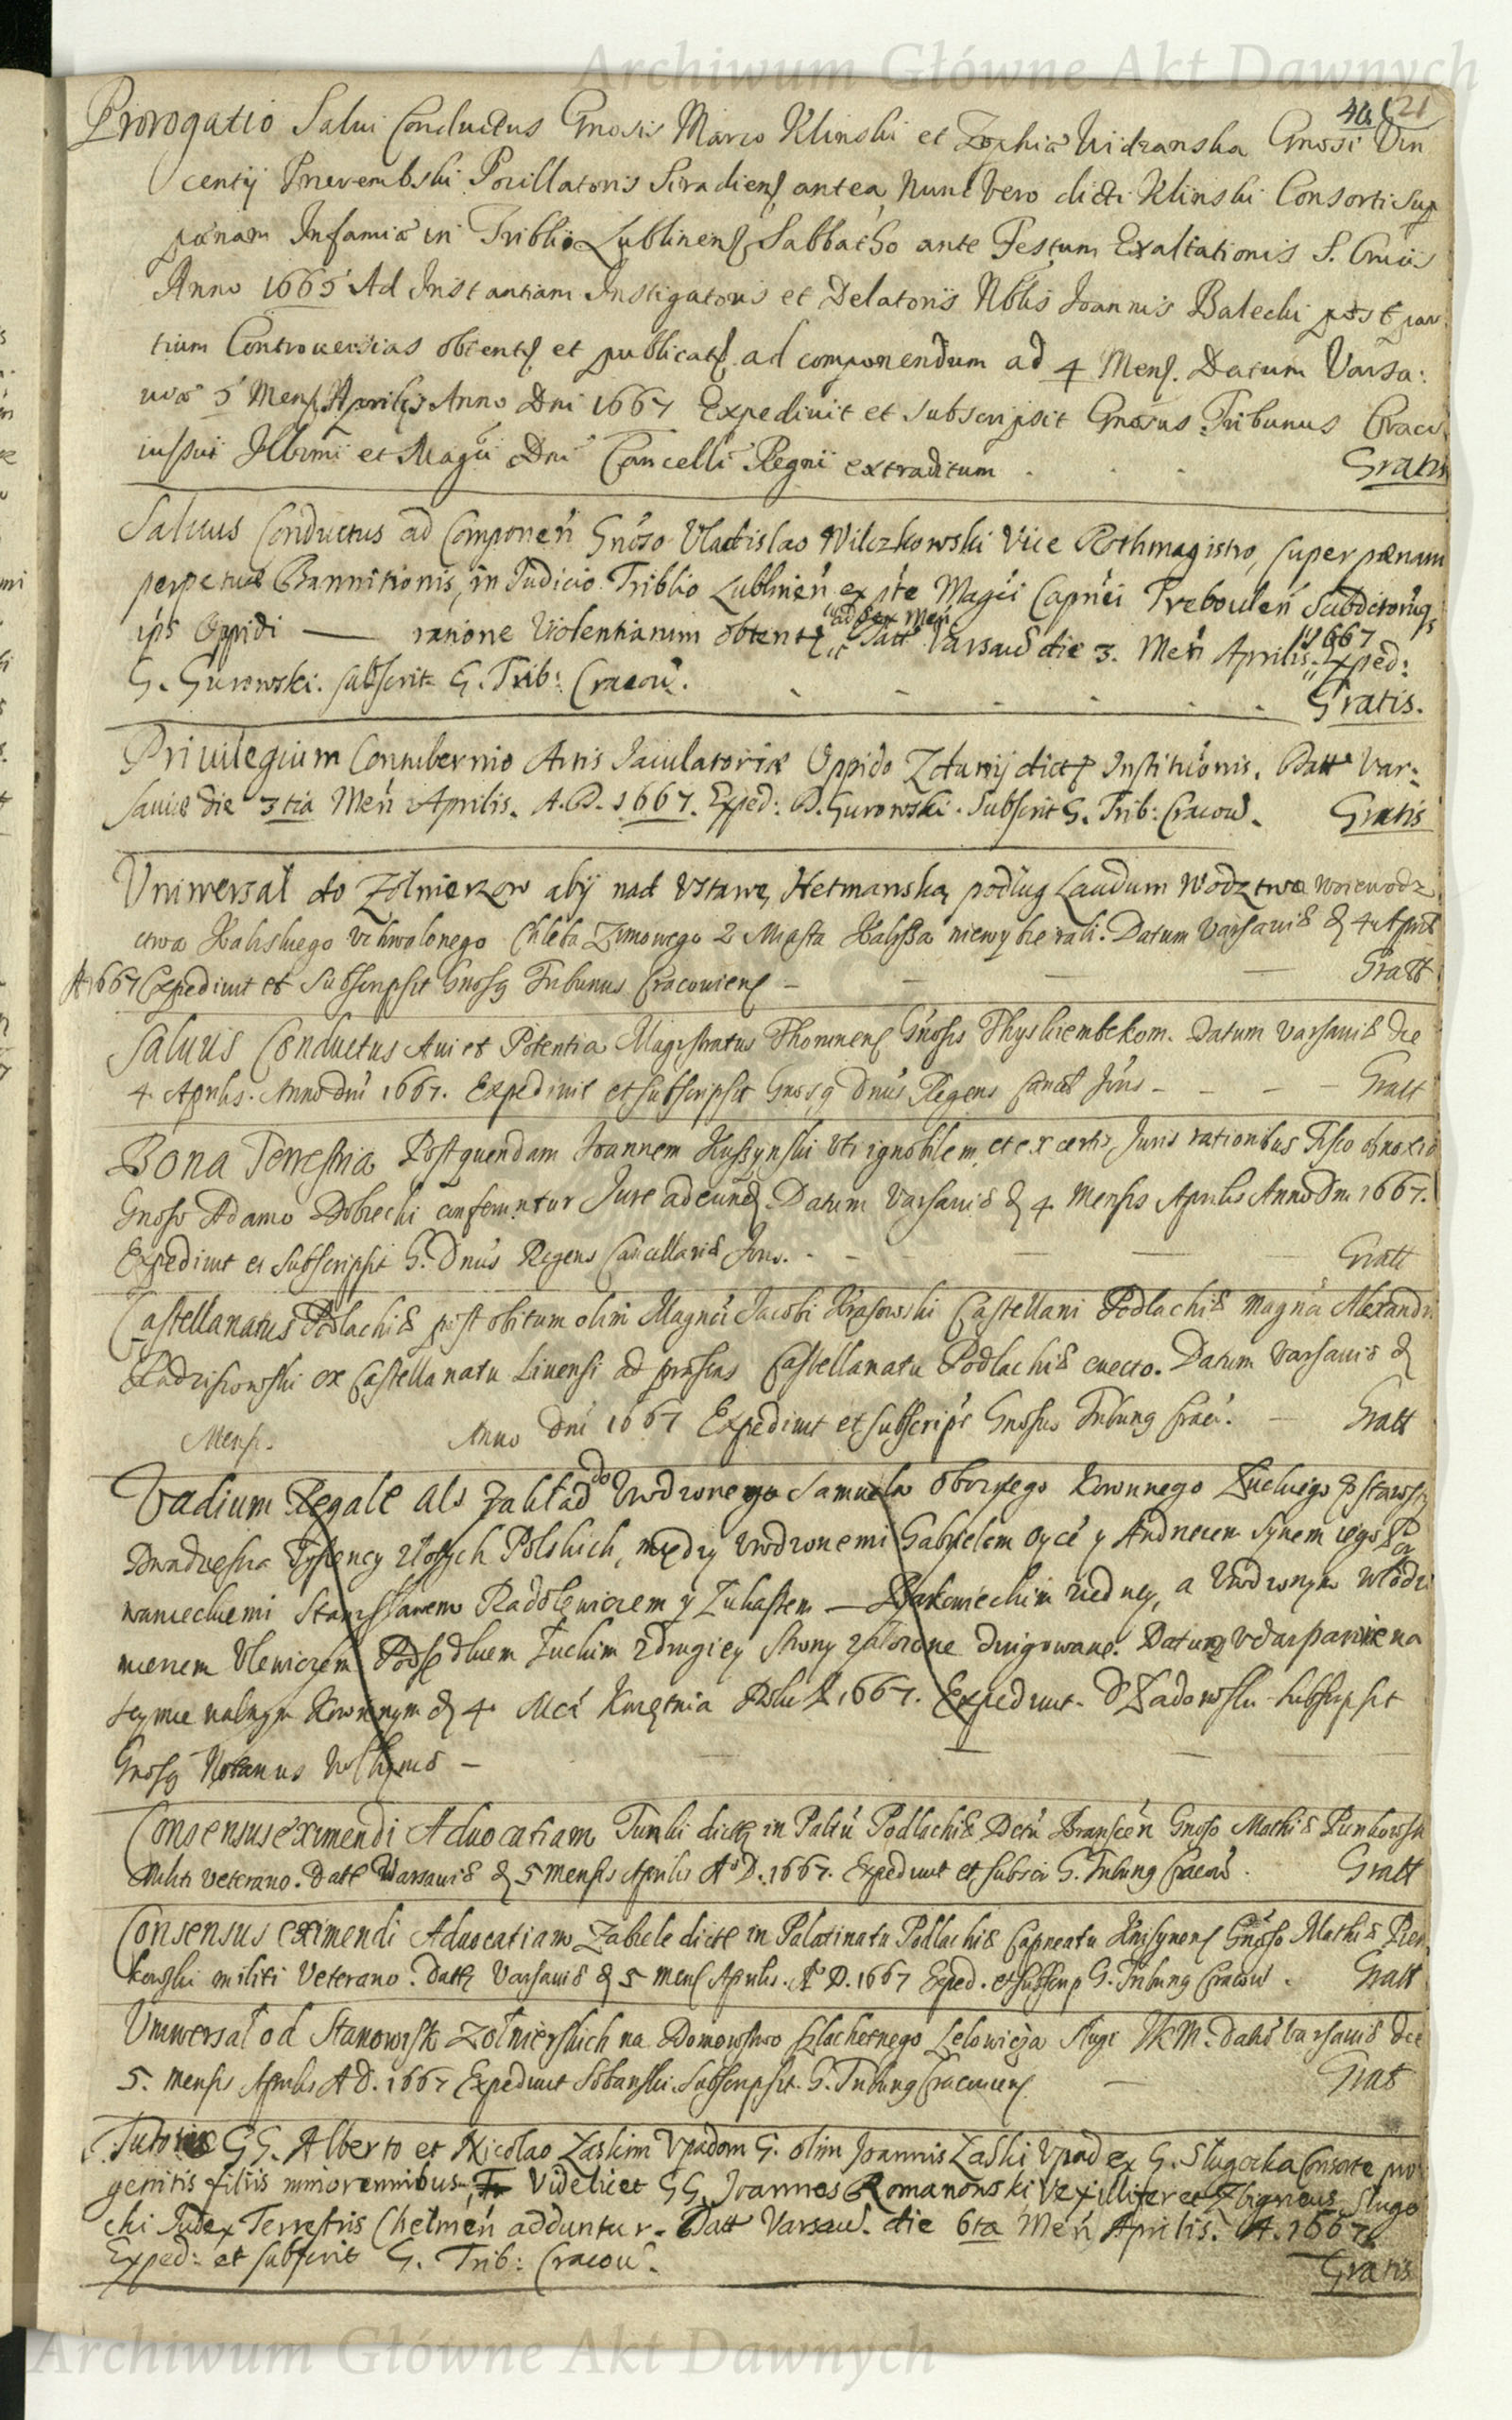 Archiwum Główne Akt Dawnych
40 (21
Prorogatio Salvi Conductus Gnosis Marco Klinski et Zophia Widzanska Gnosi Vin
centij Prerembski Pocillatoris Siradiens antea, Nunc vero dicti Klinski Consorti sup
pœnam Infamiæ in Triblio Lublinens Sabbatho ante Festum Exaltationis S. Crucis
Anno 1665 Ad Instantiam Instigatoris et Delatoris Nblis Joannis Balecki post par
tium Controversias obtents et publicats ad componendum ad 4 Mens. Datum Varsa:
viæ 5 Mens Aprilis Anno Dni 1667 Expedivit et subscripsit Gnosus Tribunus Cracu
iussui Illrmi et Magci Dni Cancelli Regni extraditum . . . Gratis
Salvus Conductus ad Componen Gnoso Vladislao Wilczkowski Vice Rothmagistro, super pænam
perpetuæ Bannitionis, in Judicio Triblio Lublinen ex pte Magci Capnei Treboulen Subditorūq
ips Oppidi — ratione Violentiarum obtent "ad sex Men" Datt Varsav die 3. Men Aprilis "1667 Exped:
G. Gurowski. subscrit G. Trib: Cracov. . . . Gratis.
Privilegium Contubernio Artis Jaculatoriæ Oppido Zduny dicto Institutionis. Datt Var:
saviæ die 3tia Men Aprilis. A. D. 1667. Exped: D. Gurowski. Subscrit G. Trib: Cracov. Gratis
Uniwersal do Zolnierzow abÿ nad Ustawę Hetmanską podług Laudum Wodztwa Woiewodz
ctwa Kaliskiego uchwalonego Chleba Zimowego z Miasta Kalissa niewybierali. Datum Varsaviæ d 4 April
A 1667 Expedivit et Subscripsit Gnosq Tribunus Cracoviens — Gratt
Salvus Conductus A vi et Potentia Magistratus Thorunens Gnosis Physkiembekom. Datum Varsaviæ die
4. Aprilis. Anno dni 1667. Expedivit et subscripsit Gnosq Dnus Regens Cancel Jms - - - Gratt
Bona Terrestria Post quendam Joannem Kuszynski uti ignobilem, et ex certis Juris rationibus Fisco obnoxia
Gnoso Adamo Dobiecki conferuntur Jure aduend. Datum Varsaviæ d 4 Mensis Aprilis Anno Dni 1667.
Expedivit et Subscripsit G. Dnus Regens Cancellariæ Jms. - — Gratt
Castellanatus Podlachiæ post obitum olim Magnci Jacobi Krasowski Castellani Podlachiæ Magnci Alexandri
ex Castellanatu Livensi ad prefatus Castellanatu Podlachiæ evecto. Datum Varsaviæ d
Mens. Anno Dni 1667 Expedivit et subscrips Gnosus Tribunq Cracu. — Gratt
Vadium Regale als zakład do Urodzonego Samuela oboznego Koronnego Łuckiego Starosty
Dwadziescia Tysięcy złotych Polskich, między Urodzonemi Gabrielem oycē y Andrzeiem Synem iego
Stanisławem Radolewiczem y Łukaszem — ziedney, a Urodzonym Włodzi
mierzem Podsędkiem Łuckim zdrugiey strony założone dirigowane. Datum w Warszawie na
seymie walnym Koronnym d 4 Mca Kwiętnia Roku P 1667. Expedivit D Zadowski subscripsit
Gnosq Notarius Volhyniæ —
Consensus eximendi Advocatiam Turski dicta in Paltu Podlachiæ Dctu Branscen Gnoso Mathiæ Pienkowski
Militi veterano. Datt Warsaviæ d 5 Mensis Aprilis Ao D. 1667. Expedivit et subscr G. Tribunq Cracov. Gratt
Consensus eximendi Advocatiam Zabiele dict in Palatinatu Podlachiæ Capneatu Knisynens Gnoso Mathiæ Pien
kowski militi Veterano. Datt Varsaviæ d 5 Mens Aprilis. Ao D. 1667 Exped. et subscrip G. Tribunq Cracov. Gratt
Uniwersał od Stanowisk Zołnierskich na Domowstwo szlachetnego Lelowicza Sługi JKM. Datt Varsaviæ die
5. Mensis Aprilis A D. 1667 Expedivit Sobanski. Subscripsit G. Tribunq Cracoviens — Grat
Tutores GG. Alberto et Nicolao Zaskim Upadom G. olim Joannis Zaski Upad ex G. Slugocka Consorte pro
genitis filiis minorennibus, Videlicet GG. Joannes Romanowski Vexillifer et Zbigneus Slugo
cki Judex Terrestris Chelmen adduntur. Datt Varsav. die 6ta Men Aprilis. A. 1667.
Exped: et subscrit G. Trib: Cracov. Gratis
Archiwum Główne Akt Dawnych